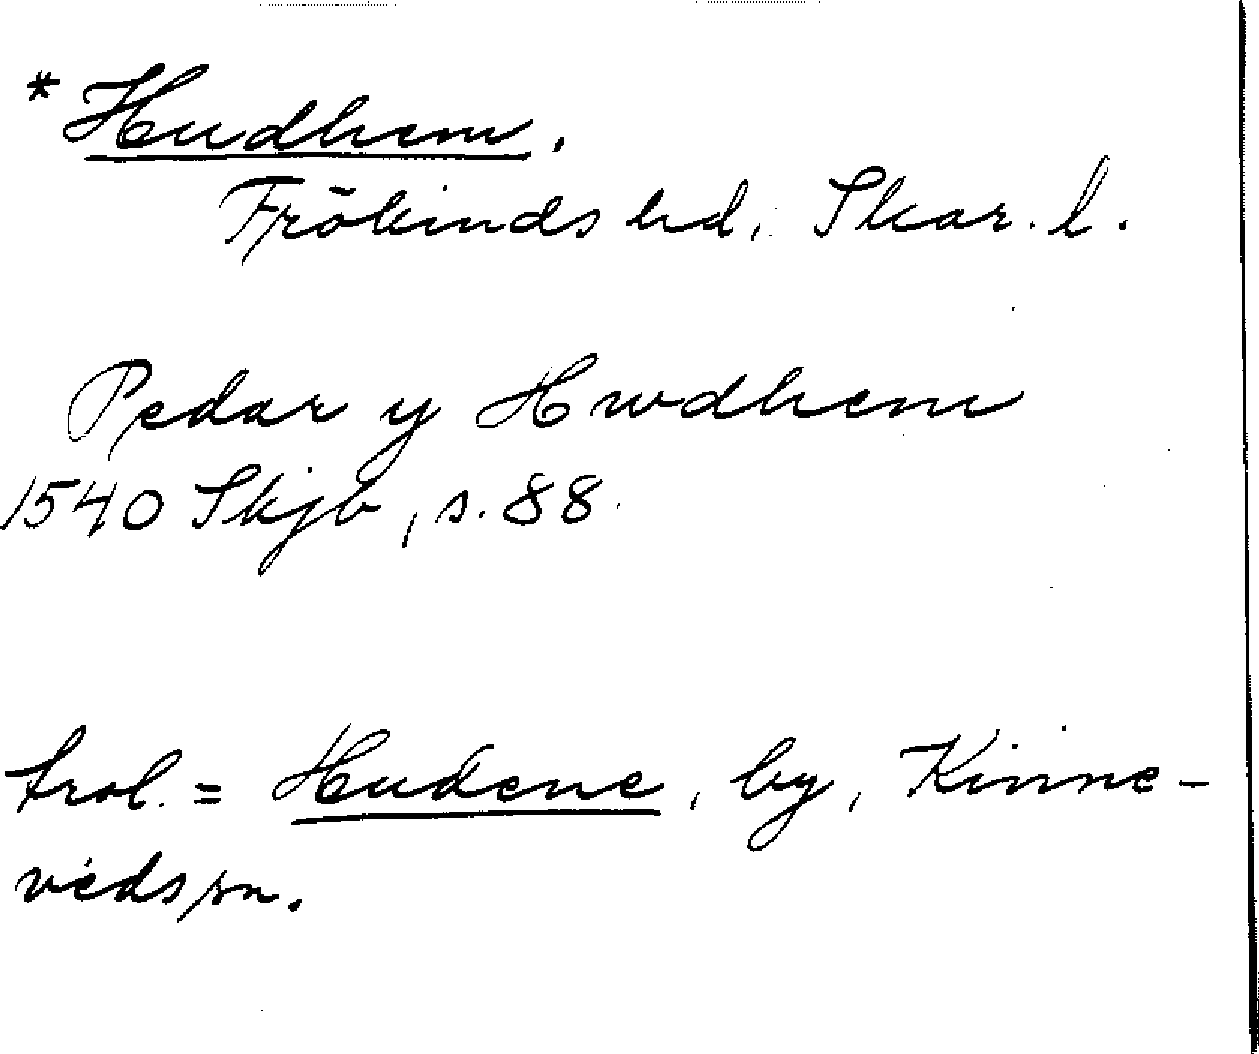 * Hudhem.
Frökinds hd, Skar. l.
Pedar y Hwdhem
1540 Skjb, s. 88.
trol. = Hudene, by, Kinne-
veds sn.